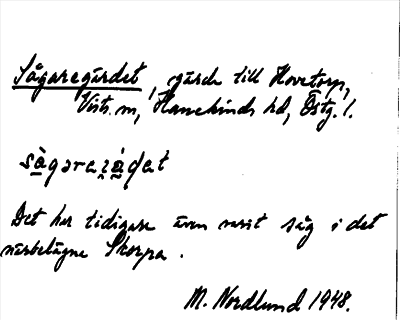 Sågaregärdet, gärde till Hovetorp,
Vists sn, Hanekinds hd, Östg. l.
Det har tidigare även varit såg i det
närbelägna Skorpa.
M. Nordlund 1948.